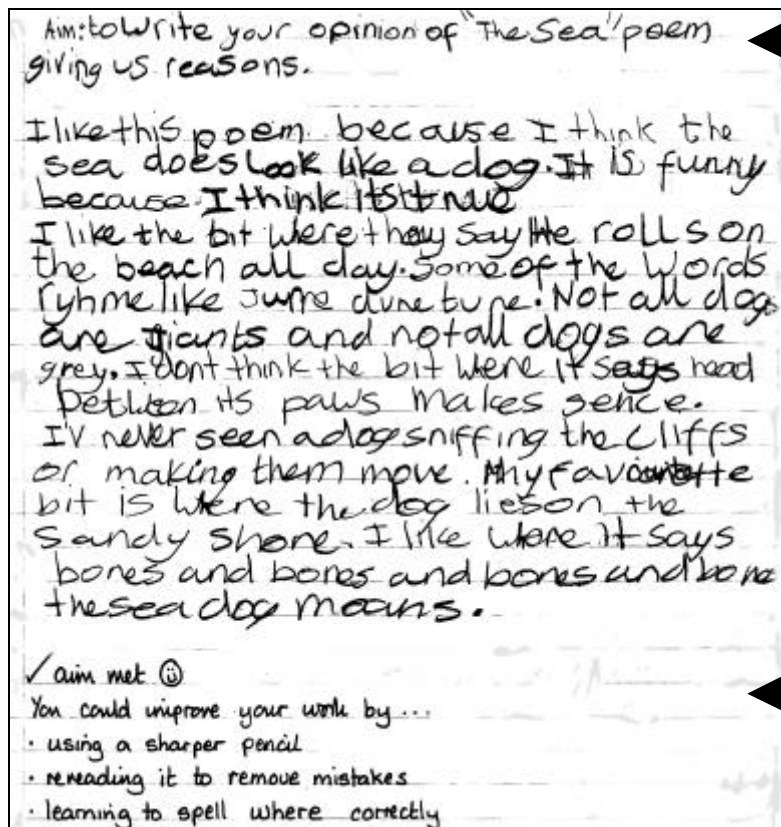 Aim: to Write your opinion of "The Sea" poem
giving us reasons.
I like this poem because I think the
sea does Look like a dog. It is funny
because I think its true
I like the bit Were they say He rolls on
the beach all day. Some of the words
ryhme like June dune tune. Not all dogs
are giants and not all dogs are
grey. I dont think the bit Were it says head
between its paws makes sence.
I'v never seen a dog sniffing the cliffs
or making them move. My favourite
bit is Were the dog lies on the
Sandy Shore. I like Were it says
bones and bones and bones and bone
the sea dog moans.
✓ aim met ☺
You could improve your work by ...
· using a sharper pencil
· rereading it to remove mistakes
· learning to spell where correctly